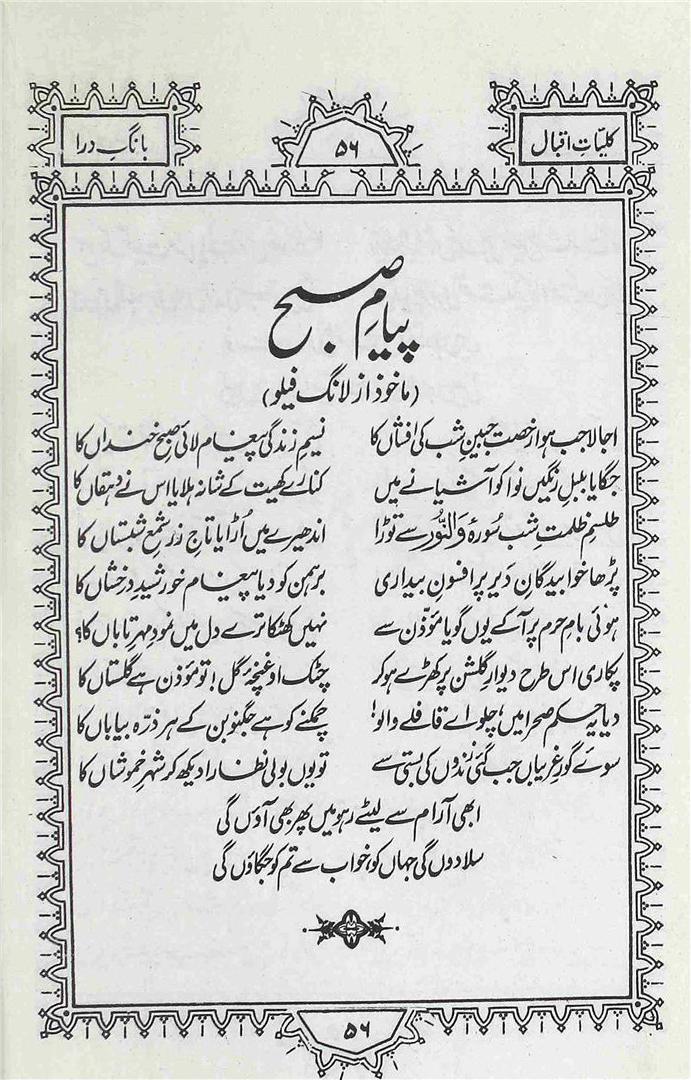 کلیّاتِ اقبال
۵۶
بانگِ درا
پیامِ صبح
(ماخوذ از لانگ فیلو)
اجالا جب ہوا رخصت جبینِ شب کی افشاں کا نسیمِ زندگی پیغام لائی صبحِ خنداں کا
جگایا بلبلِ رنگیں نوا کو آشیانے میں کنارے کھیت کے شانہ ہلایا اس نے دہقاں کا
طلسمِ ظلمتِ شب سورۂ وَالنُّور سے توڑا اندھیرے میں اُڑایا تاجِ زر شمعِ شبستاں کا
پڑھا خوابیدگانِ دَیر پر افسونِ بیداری برہمن کو دیا پیغام خورشیدِ درخشاں کا
ہوئی بامِ حرم پر آ کے یوں گویا مؤذّن سے نہیں کھٹکا ترے دل میں نمودِ مہرِ تاباں کا؟
پکاری اس طرح دیوارِ گلشن پر کھڑے ہو کر چٹک او غنچۂ گل! تو مؤذن ہے گلستاں کا
دیا یہ حکم صحرا میں؛ چلو اے قافلے والو! چمکنے کو ہے جگنو بن کے ہر ذرّہ بیاباں کا
سوئے گورِ غریباں جب گئی زندوں کی بستی سے تو یوں بولی نظارا دیکھ کر شہرِ خموشاں کا
ابھی آرام سے لیٹے رہو میں پھر بھی آؤں گی
سلا دوں گی جہاں کو خواب سے تم کو جگاؤں گی
۵۶